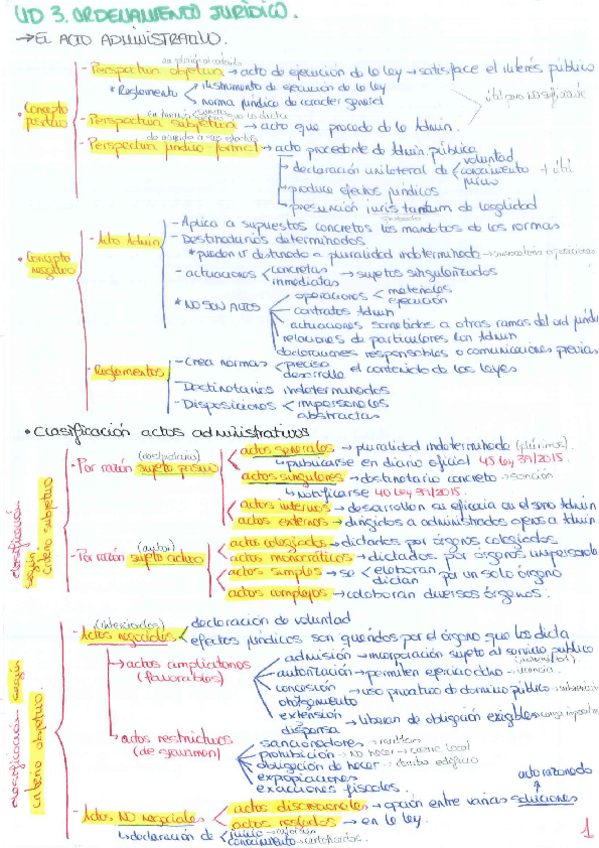 UD 3. ORDENAMIENTO JURÍDICO.
→ EL ACTO ADMINISTRATIVO.
- Perspectiva objetiva → acto de ejecución de la ley → satisface el interés público
* Reglamento < instrumento de ejecución de la ley
norma jurídica de carácter general
• Concepto positivo
- Perspectiva subjetiva → acto que procede de la Admin.
- Perspectiva jurídico-formal → acto procedente de Admin. pública
→ declaración unilateral de < voluntad
conocimiento
juicio
→ produce efectos jurídicos
→ presunción iuris tantum de legalidad
• Concepto negativo
- Acto Admin
- Aplica a supuestos concretos los mandatos de las normas
- Destinatarios determinados
* pueden ir destinado a pluralidad indeterminada → convocatoria oposiciones
- actuaciones < concretas
inmediatas → sujetos singularizados
* NO SON ACTOS
operaciones < materiales
ejecución
contratos Admin
actuaciones sometidas a otras ramas del ord. jurídi
relaciones de particulares con Admin
declaraciones responsables o comunicaciones previas
- Reglamentos
- Crea normas < precisa
desarrolla el contenido de las leyes
- Destinatarios indeterminados
- Disposiciones < impersonales
abstractas
• Clasificación actos administrativos
clasificación según criterio subjetivo
(destinatario)
- Por razón sujeto pasivo
actos generales → pluralidad indeterminada
↳ publicarse en diario oficial 45 ley 39/2015.
actos singulares → destinatario concreto → sanción
↳ notificarse 40 ley 39/2015
actos internos → desarrollan su eficacia en el seno Admin
actos externos → dirigidos a administrados ajenos a Admin
(autor)
- Por razón sujeto activo
actos colegiados → dictados por órganos colegiados
actos monocráticos → dictados por órganos unipersonale
actos simples → se < elaboran
dictan por un solo órgano
actos complejos → colaboran diversos órganos.
clasificación según criterio objetivo.
- Actos negociales < declaración de voluntad
efectos jurídicos son queridos por el órgano que los dicta
→ actos ampliatorios
(favorables)
admisión → incorporación sujeto al servicio público
autorización → permiten ejercicio dcho → licencia
concesión → uso privativo de dominio público
otorgamiento
extensión
dispensa → liberan de obligación exigible
→ actos restrictivos
(de gravamen)
sancionadores → multas
prohibición → NO hacer → cierre local
obligación de hacer → derribo edificio
expropiaciones
exacciones fiscales.
- Actos NO negociales
acto razonado
actos discrecionales → opción entre varias soluciones
actos reglados → en la ley.
↳ declaración de < juicio
conocimiento → certificados.
1